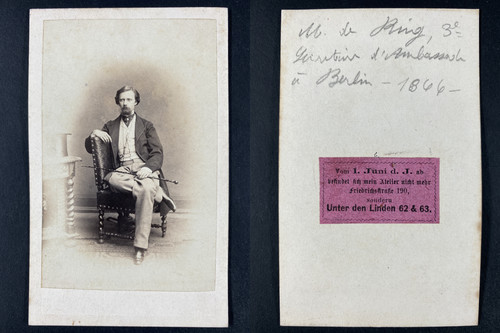 M. de Ring, 3e
Secrétaire d'Ambassade
à Berlin – 1866 –
Vom 1. Juni d. J. ab
befindet sich mein Atelier nicht mehr
Friedrichstraße 190,
sondern
Unter den Linden 62 & 63.